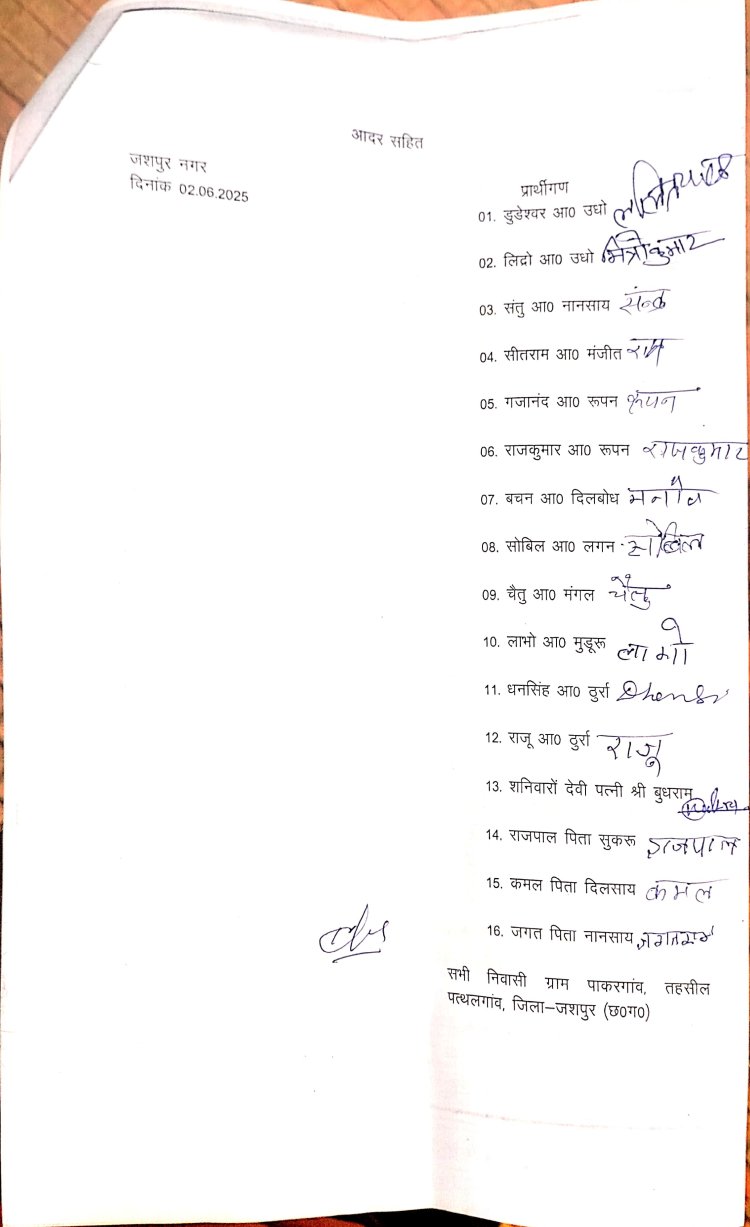 आदर सहित
जशपुर नगर
दिनांक 02.06.2025
प्रार्थीगण
01. डुडेश्वर आ0 उधो
02. लिद्रो आ0 उधो
03. संतु आ0 नानसाय
04. सीतराम आ0 मंजीत राम
05. गजानंद आ0 रूपन रूपन
06. राजकुमार आ0 रूपन राजकुमार
07. बचन आ0 दिलबोध
08. सोबिल आ0 लगन सोबिल
09. चैतु आ0 मंगल चैतु
10. लाभो आ0 मुडूरू
11. धनसिंह आ0 ठुर्रा
12. राजू आ0 ठुर्रा राजू
13. शनिवारों देवी पत्नी श्री बुधराम
14. राजपाल पिता सुकरू राजपाल
15. कमल पिता दिलसाय कमल
16. जगत पिता नानसाय
सभी निवासी ग्राम पाकरगांव, तहसील
पत्थलगांव, जिला–जशपुर (छ0ग0)